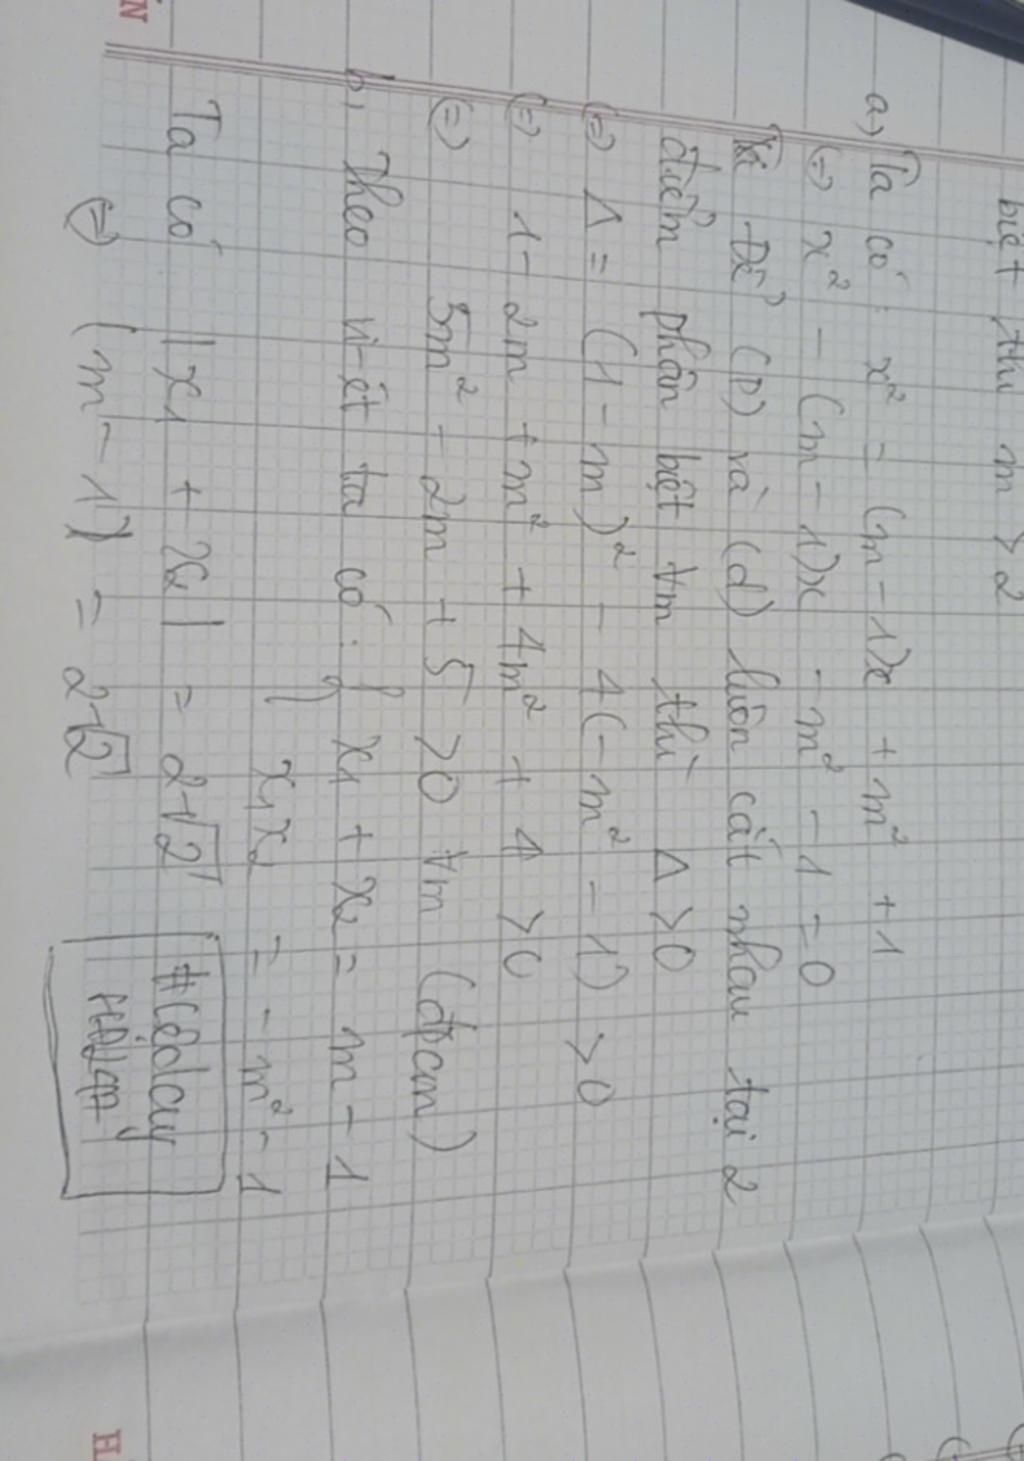 biệt thì m > 2
a) Ta có: x² = (m-1)x + m² + 1
(=) x² - (m-1)x - m² - 1 = 0
Để (P) và (d) luôn cắt nhau tại 2
điểm phân biệt ∀m thì Δ > 0
(=) Δ = (1-m)² - 4(-m² - 1) > 0
(=) 1 - 2m + m² + 4m² + 4 > 0
(=) 5m² - 2m + 5 > 0 ∀m (đpcm)
b, Theo vi-ét ta có: { x₁ + x₂ = m - 1
x₁x₂ = -m² - 1
Ta có |x₁ + x₂| = 2√2
(=) (m-1) = 2√2
N
H